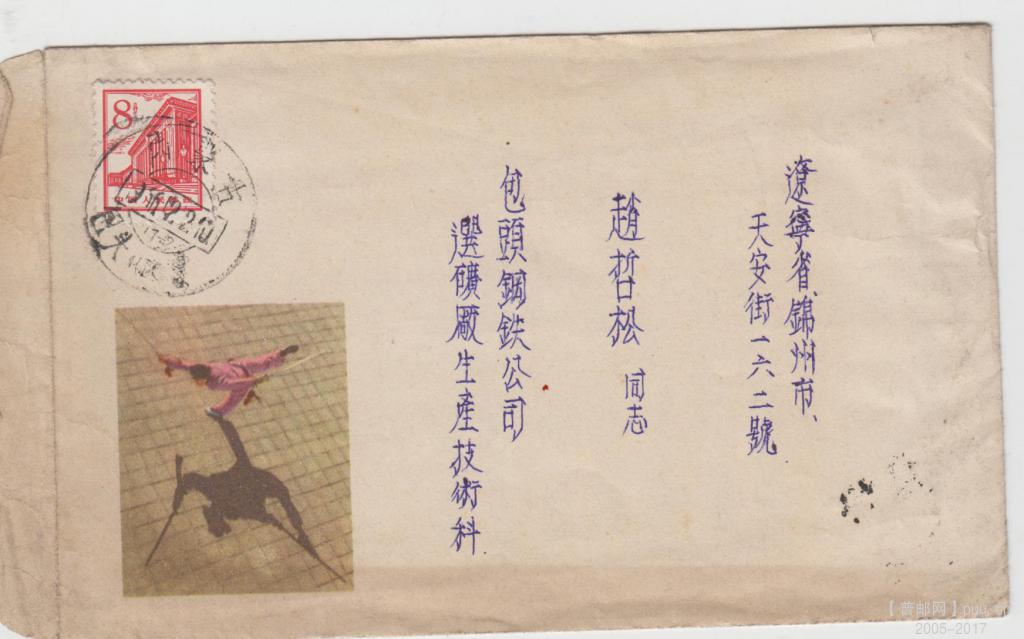 遼寧省、錦州市、
天安街一六二號
趙哲松 同志
包頭鋼鉄公司
選礦廠生產技術科
8
【普邮网】puu.cn
2005--2017